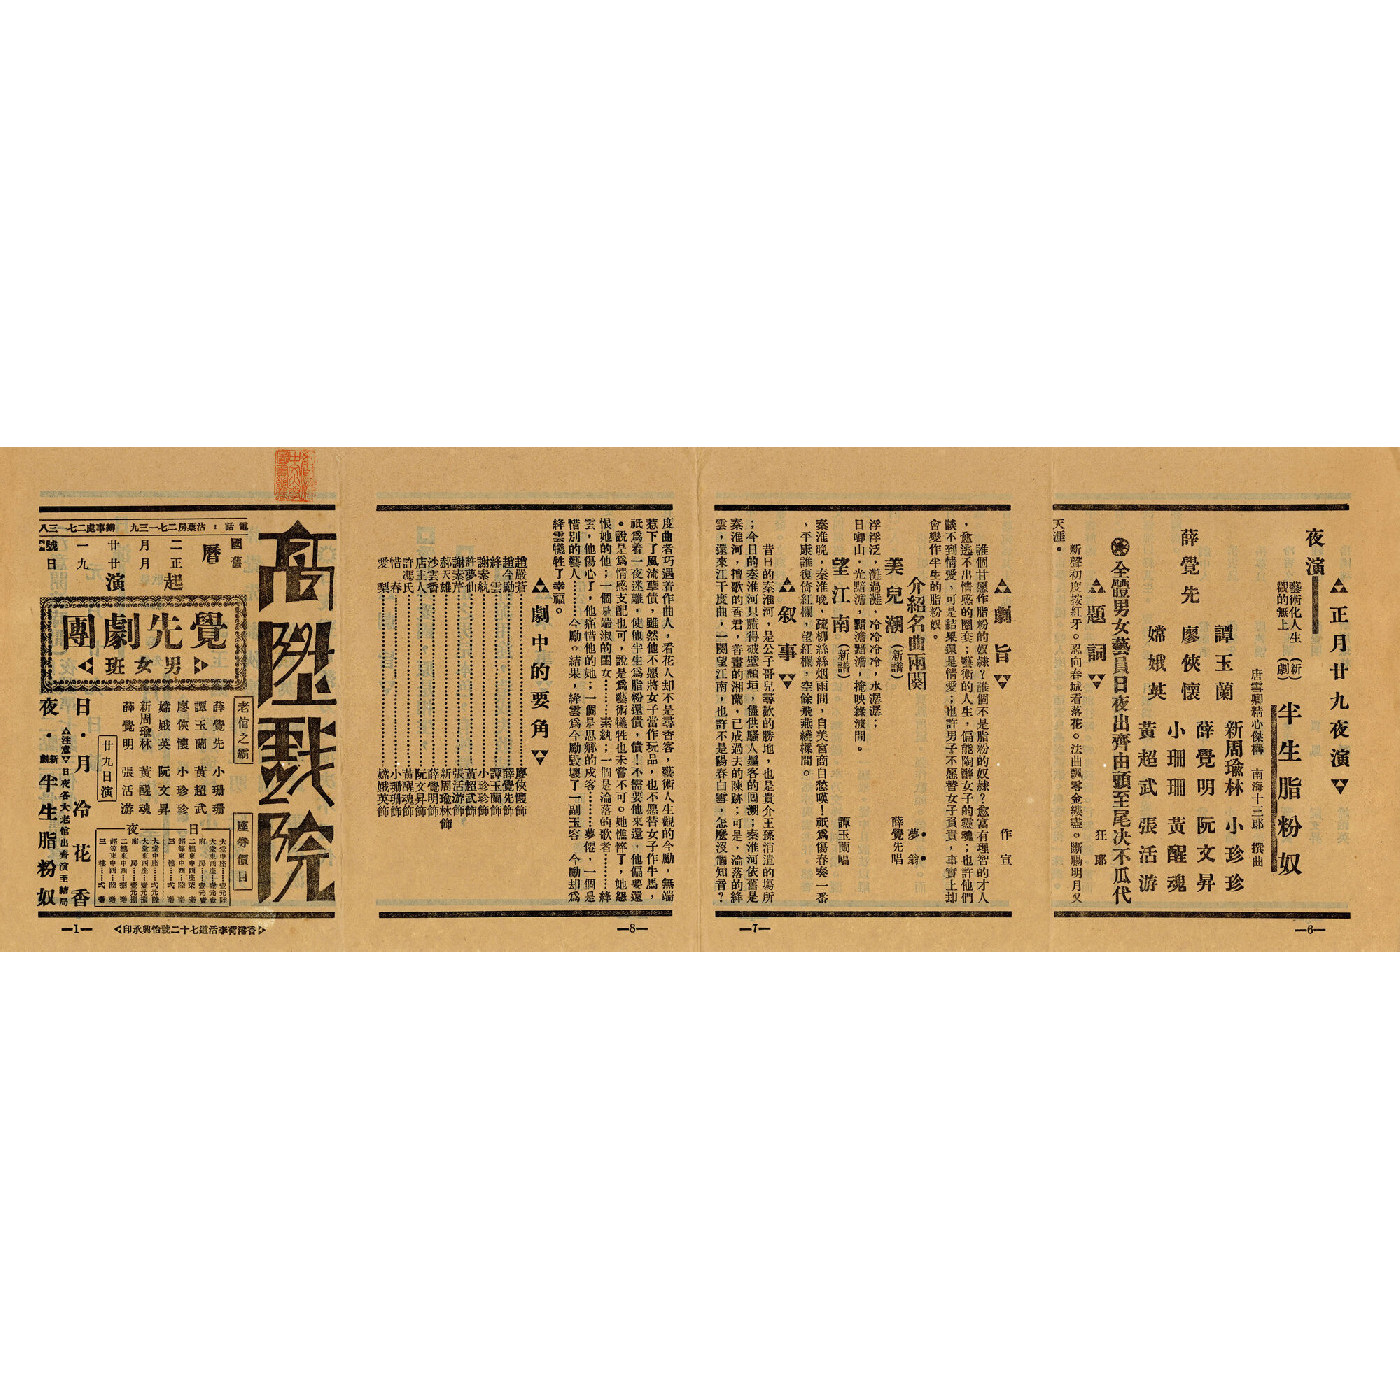 高陞戲院
電話：沽票房二七一三九　辦事處二七一三八
國曆二月廿一號
舊曆正月廿九日
起演
覺先劇團
男女班
老倌之覇
薛覺先　小珊珊
譚玉蘭　黃超武
廖俠懷　小珍珍
嫦娥英　阮文昇
新周瑜林　黃醒魂
薛覺明　張活游
座券價目
廿九日演
日・月冷花香
夜・新劇半生脂粉奴
香港荷李活道七十二號怡興承印
—1—
正月廿九夜演
夜演
藝術化人生觀的無上
（新劇）
半生脂粉奴
唐雪卿精心傑構　南海十三郎　撰曲
薛覺先
譚玉蘭
廖俠懷
嫦娥英
新周瑜林　小珍珍
薛覺明　阮文昇
小珊珊　黃醒魂
黃超武　張活游
全體男女藝員日夜出齊由頭至尾决不瓜代
題詞
狂郎
新聲初度按紅牙。忍向春城看落花。法曲飄零金縷盡。斷腸明月又
天涯。
—6—
劇旨
作宣
誰個甘愿作脂粉的奴隸？誰個不是脂粉的奴隸？愈富有理智的才人
，愈逃不出情感的圈套；藝術的人生，偏能陶醉女子的靈魂；也許他們
談不到情愛、可是結果還是情愛；也許男子不愿替女子負責，事實上却
會變作半生的脂粉奴。
介紹名曲兩闋
美兒潮（新譜）
夢翁
薛覺先唱
望江南（新譜）
譚玉蘭唱
秦淮曉，秦淮曉，疏柳絲絲烟雨間，自美宮商自愁嘆！祇爲傷春奏一番
，平康誰復倚紅欄，望紅欄，空餘飛燕繞樑間。
叙事
昔日的秦淮河，是公子哥兒尋歡的勝地，也是貴介王孫消遣的場所
；今日的秦淮河只賸得破壁頹垣，僅供騷人墨客的囘溯；秦淮河依舊是
秦淮河，擅歌的香君，善畫的湘蘭，已成過去的陳跡；可是，淪落的絳
雲，還來江干度曲，一闋望江南，也許不是陽春白雪，怎麼沒個知音？
—7—
度曲者巧遇着作曲人，看花人却不是尋香客，藝術人生觀的今勵，無端
惹下了風流孽債，雖然他不愿將女子當作玩品，也不愿替女子作牛馬，
祇爲着一夜迷離。使他半生爲脂粉還債，債！不需要他來還，他偏要還
。說是爲情感支配也可，說是爲藝術犧牲也未嘗不可。她憔悴了，她怨
恨她的他；一個是端淑的閨女……素紈；一個是淪落的歌者……絳
雲，他傷心了，他痛惜他的她；一個是思鄉的成客……夢儂，一個是
惜别的藝人……今勵。結果，絳雲爲今勵毀壞了一副玉容，今勵却爲
絳雲犧牲了幸福。
劇中的要角
趙嚴蒼……廖俠懷飾
趙今勵……薛覺先飾
絳雲……譚玉蘭飾
謝素紈……小珍珍飾
許夢仙……黃超武飾
謝素芹……張活游飾
郝天雄……新周瑜林飾
沙雲香……薛覺明飾
店主人……阮文昇飾
許馮氏……黃醒魂飾
惜春……小珊珊飾
愛梨……嫦娥英飾
—8—